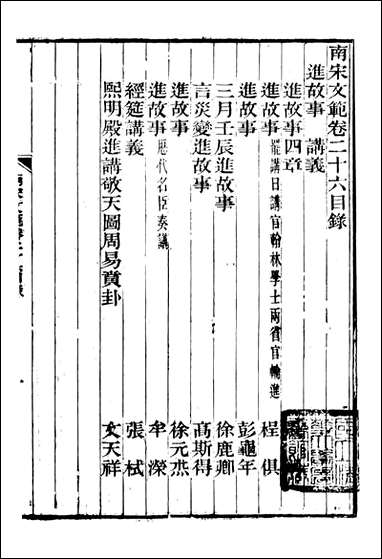 南宋文範卷二十六目錄
進故事 講義
進故事四章 程俱
進故事 罷講日講官翰林學士兩省官輪進 彭龜年
三月壬辰進故事 徐鹿卿
言災變進故事 高斯得
進故事 徐元杰
進故事 歷代名臣奏議 牟濚
經筵講義 張栻
熙明殿進講敬天圖周易賁卦 文天祥